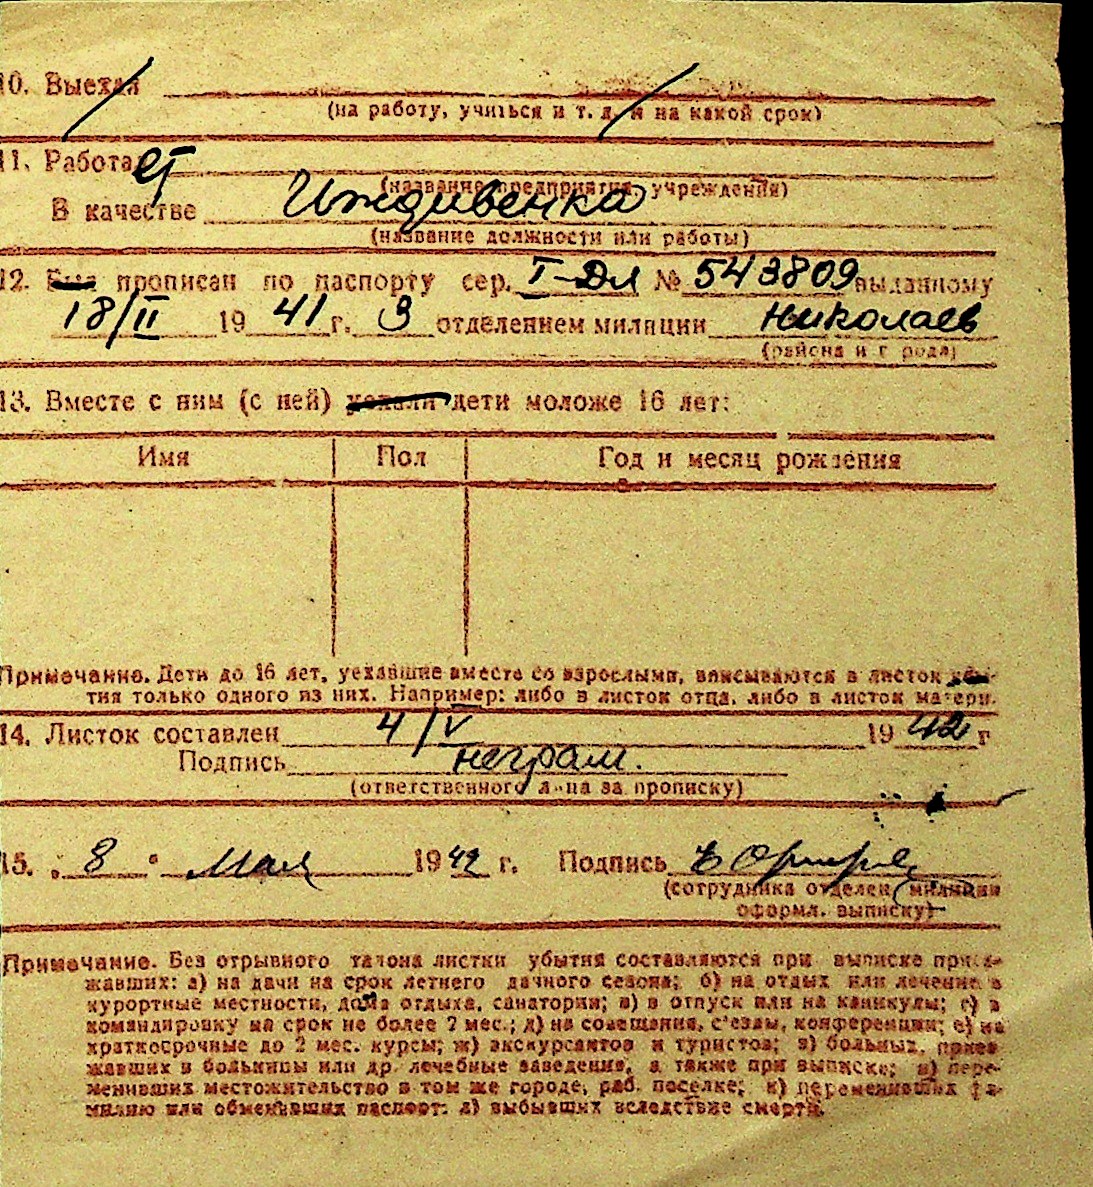 10. Выехал
(на работу, учиться и т. д. и на какой срок)
11. Работает
(название предприятия, учреждения)
В качестве Иждивенка
(название должности или работы)
12. Был прописан по паспорту сер. I-Дл № 543809 выданному
18/II 1941 г. 3 отделением милиции Николаев
(района и города)
13. Вместе с ним (с ней) уехали дети моложе 16 лет:
Имя Пол Год и месяц рождения
Примечание. Дети до 16 лет, уехавшие вместе со взрослыми, вписываются в листок убы-
тия только одного из них. Например: либо в листок отца, либо в листок матери.
14. Листок составлен 4/V 1942 г
Подпись неграм.
(ответственного лица за прописку)
15. „8" Мая 1942 г. Подпись
(сотрудника отделен. милиции
оформл. выписку)
Примечание. Без отрывного талона листки убытия составляются при выписке приез-
жавших: а) на дачи на срок летнего дачного сезона; б) на отдых или лечение в
курортные местности, дома отдыха, санатории; в) в отпуск или на каникулы; г) в
командировку на срок не более 2 мес.; д) на совещания, с'езды, конференции; е) на
краткосрочные до 2 мес. курсы; ж) экскурсантов и туристов; з) больных, приез-
жавших в больницы или др. лечебные заведения, а также при выписке; и) пере-
менивших местожительство в том же городе, раб. поселке; к) переменивших фа-
милию или обменивших паспорт; л) выбывших вследствие смерти.